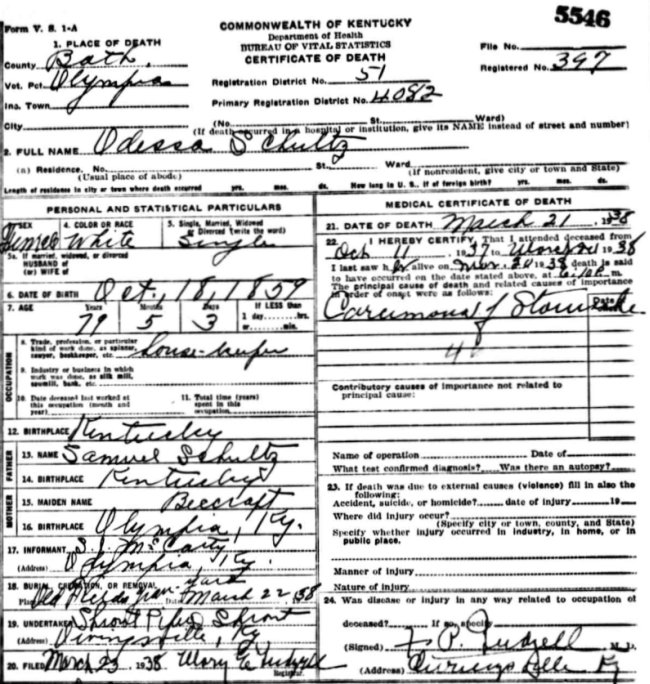 Form V. S. 1-A
5546
COMMONWEALTH OF KENTUCKY
Department of Health
BUREAU OF VITAL STATISTICS
CERTIFICATE OF DEATH
1. PLACE OF DEATH
File No.
County Bath
Registered No. 397
Vot. Pct. Olympia
Registration District No. 51
Inc. Town
Primary Registration District No. 4082
City (No. St. Ward)
(If death occurred in a hospital or institution, give its NAME instead of street and number)
2. FULL NAME Odessa Schultz
(a) Residence. No. St. Ward
(Usual place of abode) (If nonresident, give city or town and State)
Length of residence in city or town where death occurred yrs. mos. ds. How long in U. S., if of foreign birth? yrs. mos. ds.
PERSONAL AND STATISTICAL PARTICULARS
3. SEX 4. COLOR OR RACE 5. Single, Married, Widowed
or Divorced (write the word)
Female White Single
5a. If married, widowed, or divorced
HUSBAND of
(or) WIFE of
6. DATE OF BIRTH Oct. 18, 1859
7. AGE Years Months Days If LESS than
79 5 3 1 day hrs.
or min.
OCCUPATION
8. Trade, profession, or particular
kind of work done, as spinner,
sawyer, bookkeeper, etc. house-keeper
9. Industry or business in which
work was done, as silk mill,
sawmill, bank, etc.
10. Date deceased last worked at
this occupation (month and
year)
11. Total time (years)
spent in this
occupation
12. BIRTHPLACE Kentucky
FATHER
13. NAME Samuel Schultz
14. BIRTHPLACE Kentucky
MOTHER
15. MAIDEN NAME Becraft
16. BIRTHPLACE Olympia, Ky.
17. INFORMANT S. J. McCarty
(Address) Olympia, Ky.
18. BURIAL, CREMATION, OR REMOVAL
Date March 22 1938
19. UNDERTAKER
(Address) Owingsville, Ky
20. FILED March 23 1938
Registrar.
MEDICAL CERTIFICATE OF DEATH
21. DATE OF DEATH March 21, 1938
22. I HEREBY CERTIFY, That I attended deceased from
Oct 11 1937 to March 21 1938
I last saw her alive on Mar. 20 1938 death is said
to have occurred on the date stated above, at m.
The principal cause of death and related causes of importance
in order of onset were as follows: Date
Carcinoma of Stomach
Contributory causes of importance not related to
principal cause:
Name of operation Date of
What test confirmed diagnosis? Was there an autopsy?
23. If death was due to external causes (violence) fill in also the
following:
Accident, suicide, or homicide? date of injury 19
Where did injury occur?
(Specify city or town, county, and State)
Specify whether injury occurred in industry, in home, or in
public place.
Manner of injury
Nature of injury
24. Was disease or injury in any way related to occupation of
deceased? If so, specify
(Signed) M. D.
(Address) Owingsville Ky